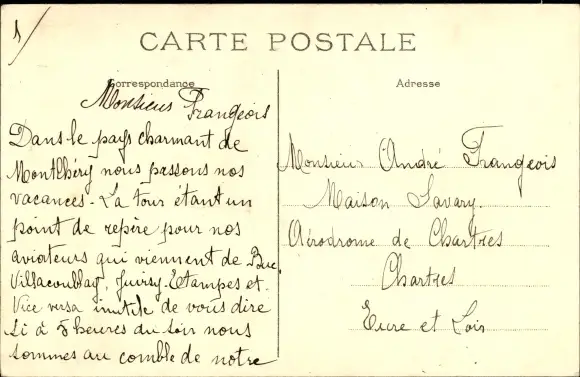 CARTE POSTALE
Correspondance
Monsieur Frangeois
Dans le pays charmant de
Montlhéry nous passons nos
vacances - La tour étant un
point de repère pour nos
aviateurs qui viennent de Buc,
Villacoublay, Juvisy - Etampes et
Vice versa inutile de vous dire
si à 5 heures du soir nous
sommes au comble de notre
Adresse
Monsieur André Frangeois
Maison Savary
Aérodrome de Chartres
Chartres
Eure et Loir